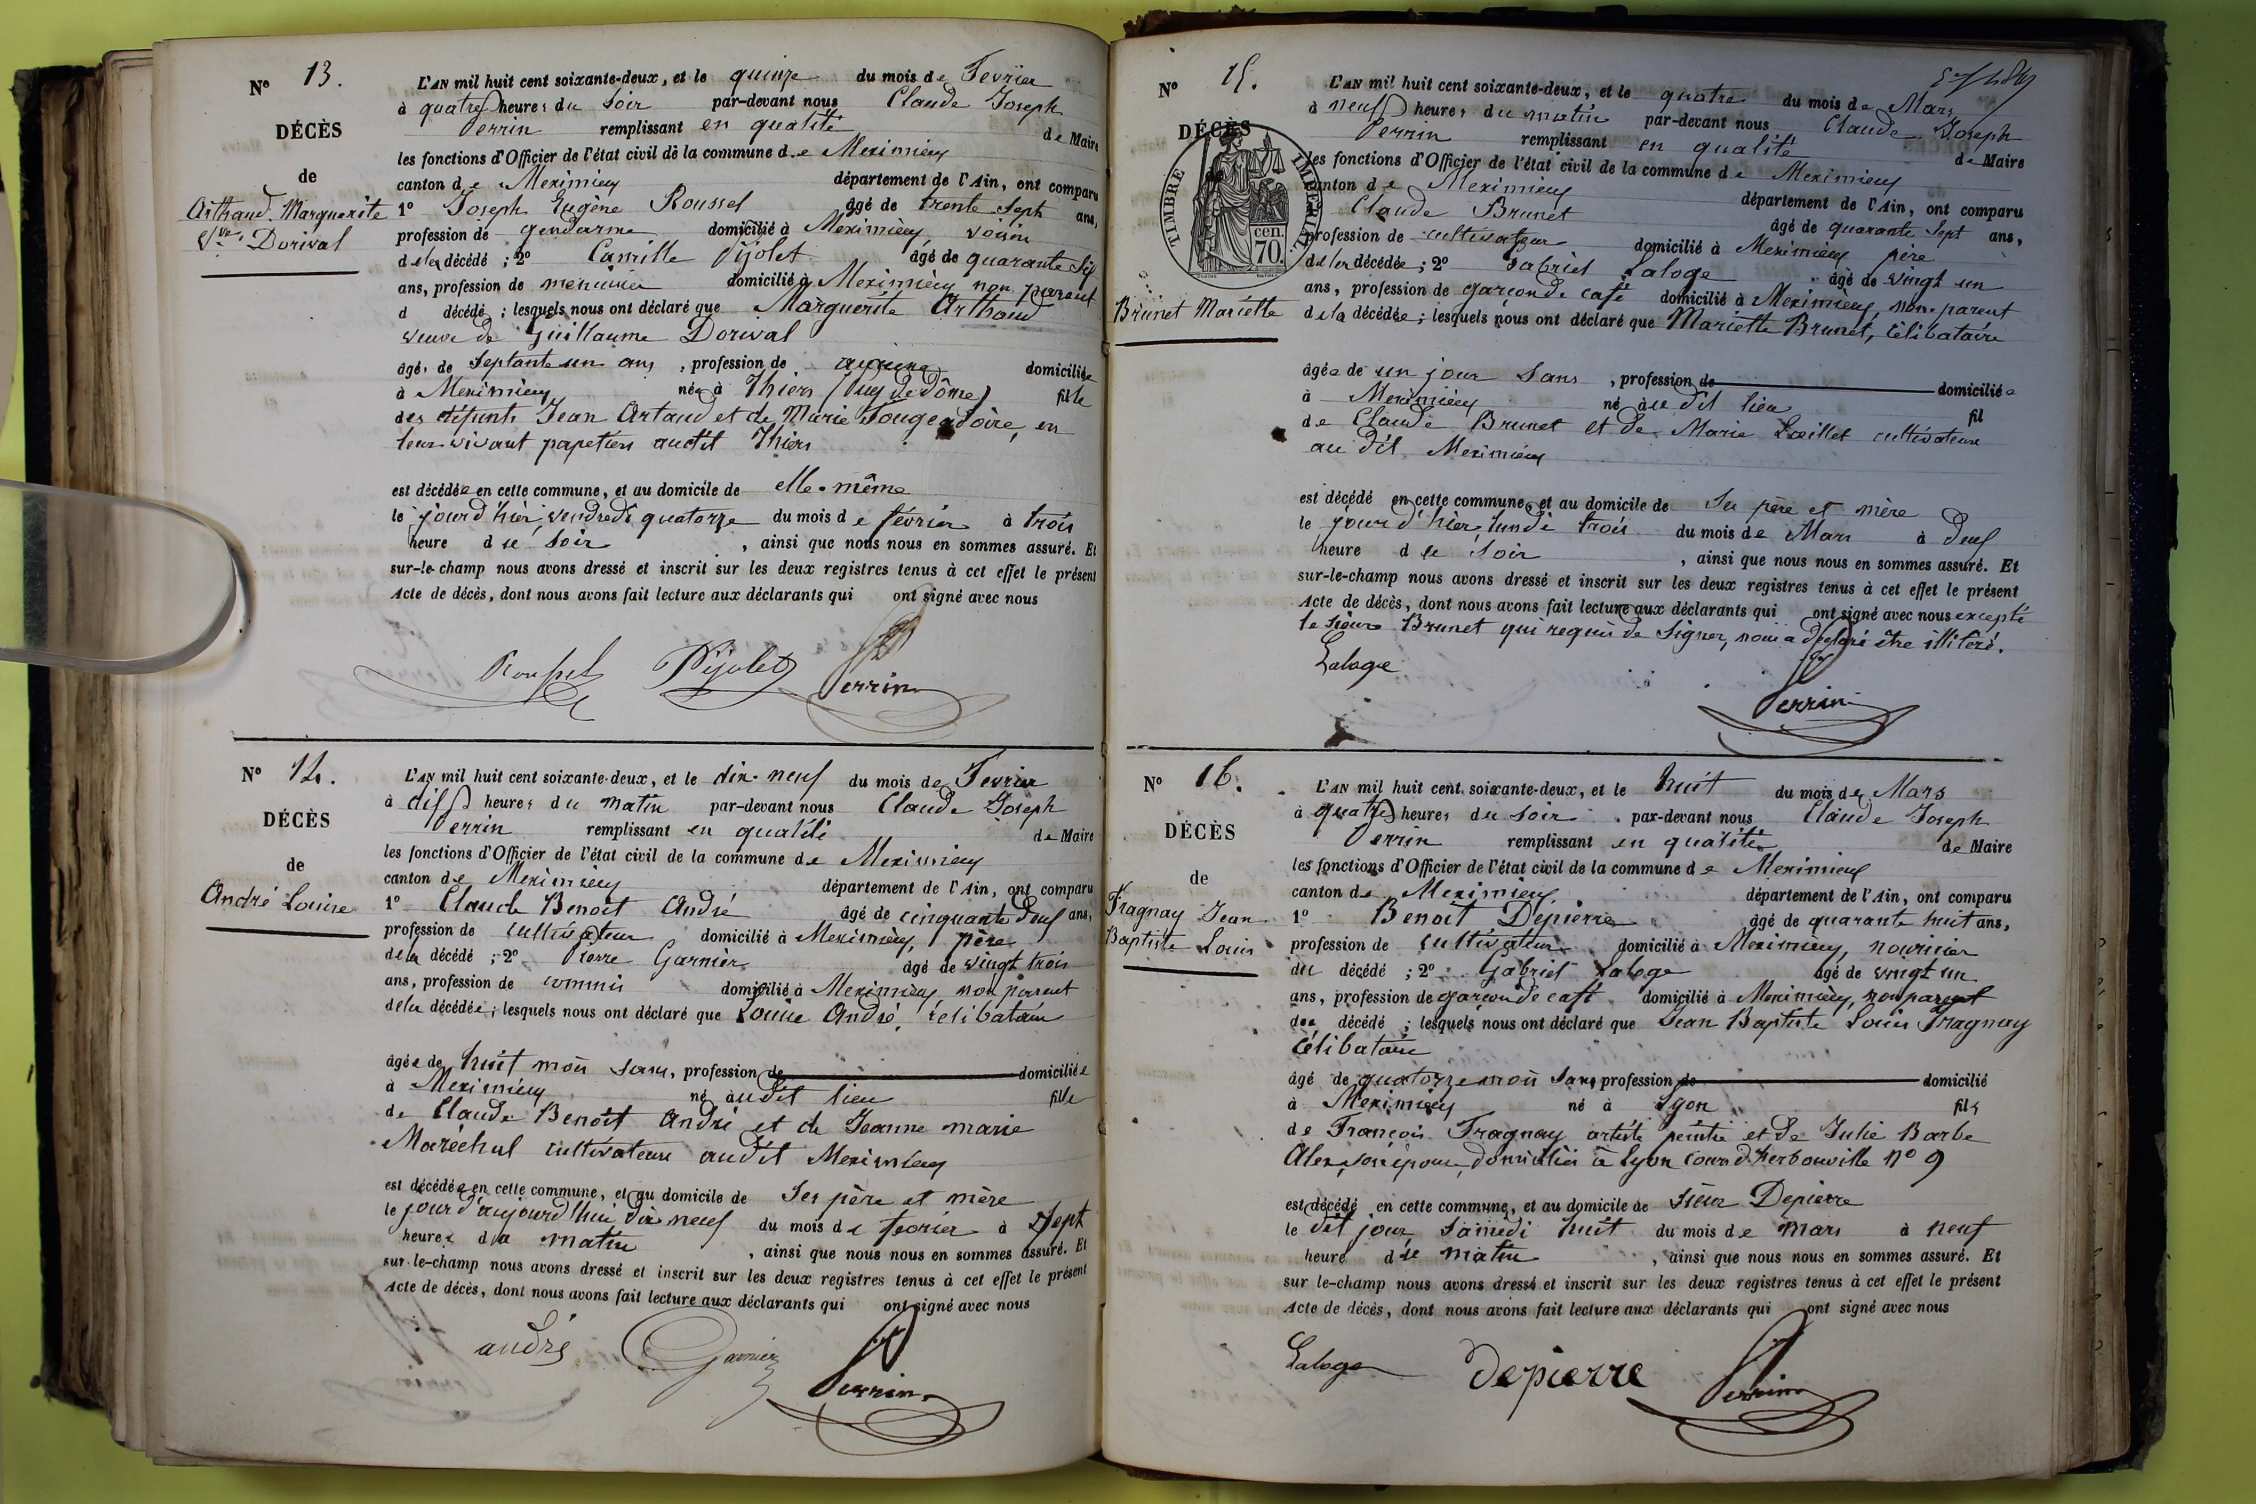 N° 13.
DÉCÈS
de
Arthaud Marguerite
Vve Dorival
L'AN mil huit cent soixante-deux, et le quinze du mois de Fevrier
à quatre heures du soir par-devant nous Claude Joseph
Perrin remplissant en qualité de Maire
les fonctions d'Officier de l'état civil de la commune de Meximieux
canton de Meximieux département de l'Ain, ont comparu
1° Joseph Eugène Roussel âgé de trente sept ans,
profession de gendarme domicilié à Meximieux voisin
de la décédé ; 2° Camille Pijolet âgé de quarante six
ans, profession de menuisier domicilié à Meximieux non parent
d décédé ; lesquels nous ont déclaré que Marguerite Arthaud
veuve de Guillaume Dorival
âgée de septante un ans, profession de aucune domiciliée
à Meximieux née à Thiers (Puy de Dôme) fille
des défunts Jean Artaud et de Marie Fougeadoire, en
leur vivant papetiers audit Thiers
est décédée en cette commune, et au domicile de elle-même
le jour d'hier vendredi quatorze du mois de février à trois
heure du soir , ainsi que nous nous en sommes assuré. Et
sur-le-champ nous avons dressé et inscrit sur les deux registres tenus à cet effet le présent
Acte de décès, dont nous avons fait lecture aux déclarants qui ont signé avec nous
Roussel Pijolet Perrin
N° 14.
DÉCÈS
de
André Louise
L'AN mil huit cent soixante-deux, et le dix-neuf du mois de Fevrier
à dix heures du matin par-devant nous Claude Joseph
Perrin remplissant en qualité de Maire
les fonctions d'Officier de l'état civil de la commune de Meximieux
canton de Meximieux département de l'Ain, ont comparu
1° Claude Benoit André âgé de cinquante deux ans,
profession de cultivateur domicilié à Meximieux, père
de la décédé ; 2° Pierre Garnier âgé de vingt trois
ans, profession de commis domicilié à Meximieux non parent
de la décédée ; lesquels nous ont déclaré que Louise André, célibataire
âgée de huit mois sans, profession de domiciliée
à Meximieux né audit lieu fille
de Claude Benoit André et de Jeanne marie
Maréchal cultivateurs audit Meximieux
est décédée en cette commune, et au domicile de Ses père et mère
le jour d'aujourd'hui dix neuf du mois de fevrier à Sept
heures du matin , ainsi que nous nous en sommes assuré. Et
sur-le-champ nous avons dressé et inscrit sur les deux registres tenus à cet effet le présent
Acte de décès, dont nous avons fait lecture aux déclarants qui ont signé avec nous
andré Garnier Perrin
N° 15.
DÉCÈS
TIMBRE IMPÉRIAL
cen.
70.
Brunet Mariette
L'AN mil huit cent soixante-deux, et le quatre du mois de Mars
à neuf heures du matin par-devant nous Claude Joseph
Perrin remplissant en qualité de Maire
les fonctions d'Officier de l'état civil de la commune de Meximieux
canton de Meximieux département de l'Ain, ont comparu
Claude Brunet âgé de quarante sept ans,
profession de cultivateur domicilié à Meximieux père
de la décédée ; 2° Gabriel Laloge âgé de vingt un
ans, profession de garçon de café domicilié à Meximieux, non parent
de la décédée ; lesquels nous ont déclaré que Mariette Brunet, célibataire
âgée de un jour sans, profession de domiciliée
à Meximieux né au dit lieu fil
de Claude Brunet et de Marie Loeillet cultivateurs
au dit Meximieux
est décédé en cette commune, et au domicile de Ses père et mère
le jour d'hier lundi trois du mois de Mars à deux
heure du soir , ainsi que nous nous en sommes assuré. Et
sur-le-champ nous avons dressé et inscrit sur les deux registres tenus à cet effet le présent
Acte de décès, dont nous avons fait lecture aux déclarants qui ont signé avec nous excepté
le sieur Brunet qui requis de signer, nous a déclaré être illitéré.
Laloge
Perrin
N° 16.
DÉCÈS
de
Fragnay Jean
Baptiste Louis
L'AN mil huit cent soixante-deux, et le huit du mois de Mars
à quatre heures du soir par-devant nous Claude Joseph
Perrin remplissant en qualité de Maire
les fonctions d'Officier de l'état civil de la commune de Meximieux
canton de Meximieux département de l'Ain, ont comparu
1° Benoit Depierre âgé de quarante huit ans,
profession de cultivateur domicilié à Meximieux, nourricier
du décédé ; 2° Gabriel Laloge âgé de vingt un
ans, profession de garçon de café domicilié à Meximieux, non parent
décédé ; lesquels nous ont déclaré que Jean Baptiste Louis Fragnay
célibataire
âgé de quatorze mois sans profession de domicilié
à Meximieux né à Lyon fils
de François Fragnay artiste peintre et de Julie Barbe
son épouse, domiciliés à Lyon cours d'herbouville N° 9
est décédé en cette commune, et au domicile de sieur Depierre
le dit jour Samedi huit du mois de mars à neuf
heure du matin , ainsi que nous nous en sommes assuré. Et
sur le-champ nous avons dressé et inscrit sur les deux registres tenus à cet effet le présent
Acte de décès, dont nous avons fait lecture aux déclarants qui ont signé avec nous
Laloge depierre Perrin